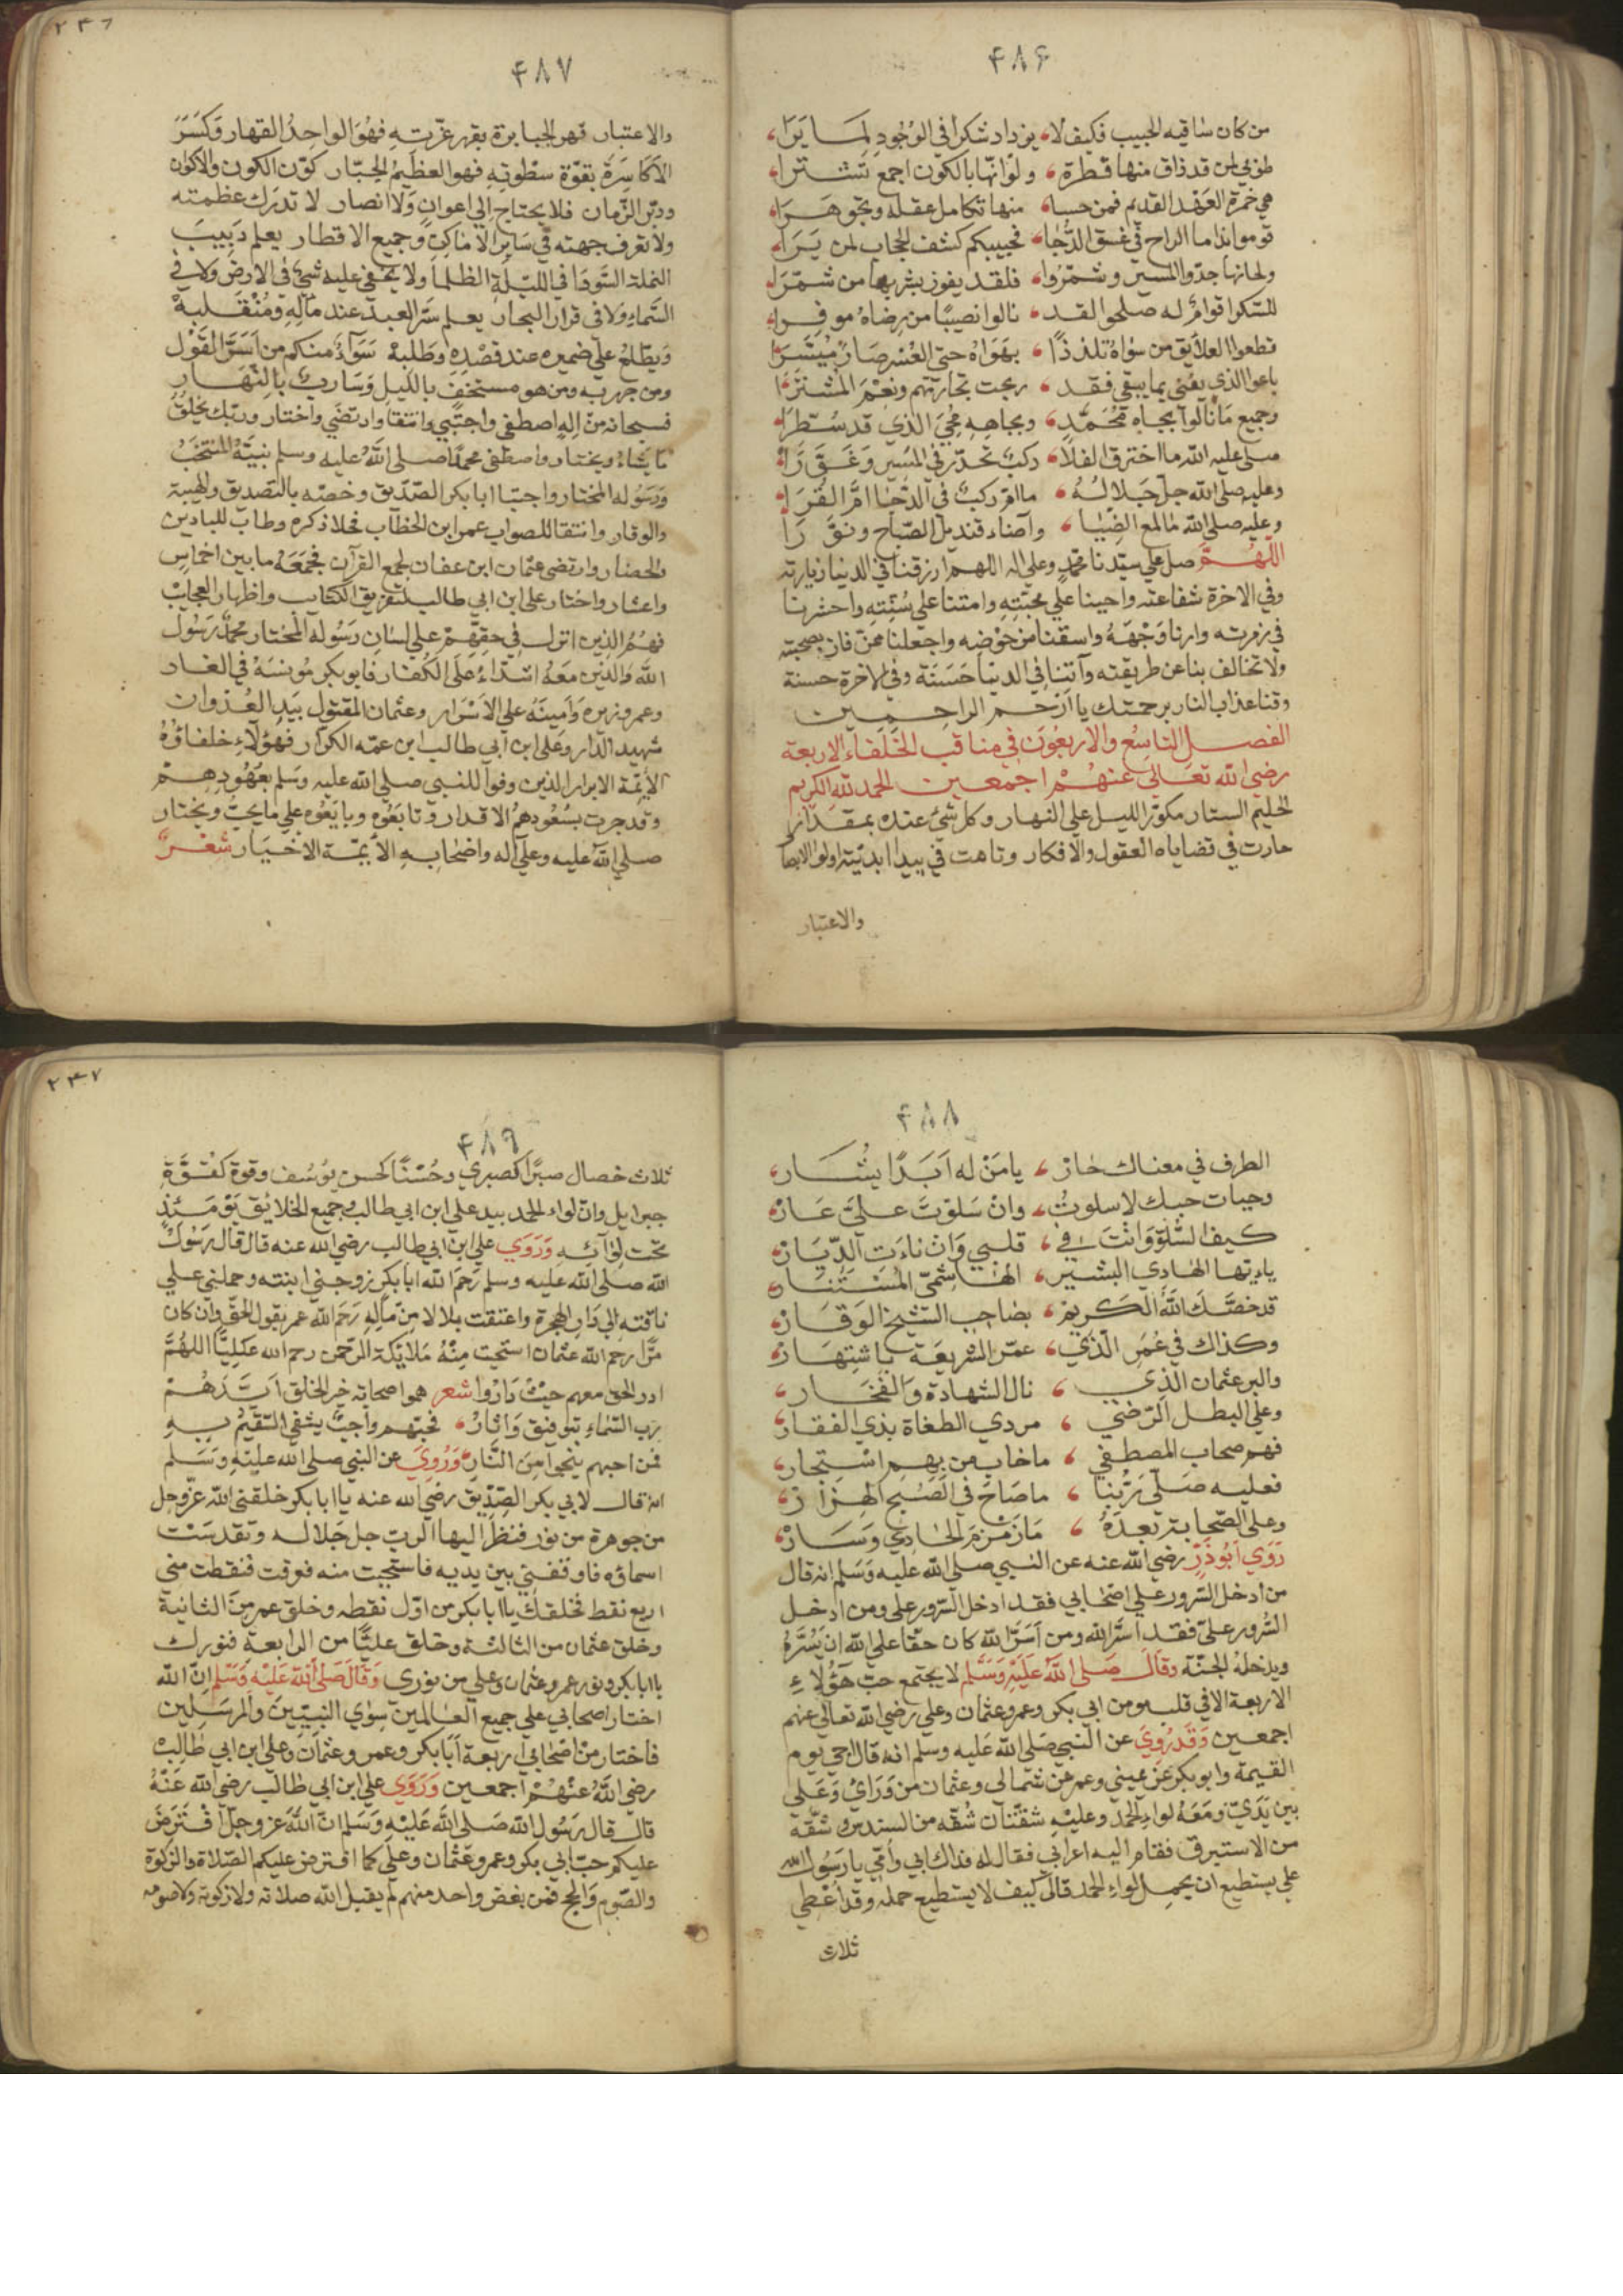 ٤٨٦
من كان ساقيه الحبيب فكيف لا، يزداد شكرا في الوجود لما يرا،
طوبي لمن قد ذاق منها قطرة، ولو انها بالكون اجمع تشترا،
هي خمرة العهد القديم فمن حسا، منها تكامل عقله وتجوهرا،
قوموا بنا ما الراح في غسق الدجا، فحبيبكم كشف الحجاب لمن يرا،
ولحانها جدوا المسير وشمروا، فلقد يفوز بشربها من شمرا،
للسكر اقوام له صلحوا لقد، نالوا نصيبا من رضاه موفرا،
قطعوا العلايق من سواه تلذذا، بهواه حتي العسر صار ميسرا،
باعوا الذي يفني بما يبقي فقد، ربحت تجارتهم ونعم المشترا،
وجميع ما نالوا بجاه محمد، وبجاهه محي الذي قد سطرا،
صلي عليه الله ما اخترق الفلا، ركب تحدر في المسير وغورا،
وعليه صلي الله جل جلاله، ما ام ركب في الدجا ام القرا،
وعليه صلي الله ما لمع الضيا، واضاء قنديل الصباح ونورا
اللهم صل علي سيدنا محمد وعلي اله اللهم ارزقنا في الدنيا زيارته
وفي الاخرة شفاعته واحينا علي محبته وامتنا علي سنته واحشرنا
في زمرته وارنا وجهه واسقنا من حوضه واجعلنا ممن فاز بصحبته
ولا تخالف بنا عن طريقته وآتنا في الدنيا حسنة وفي الاخرة حسنة
وقنا عذاب النار برحمتك يا ارحم الراحمين
الفصل التاسع والاربعون في مناقب الخلفاء الاربعة
رضي الله تعالي عنهم اجمعين الحمد لله الكريم
الحليم الستار مكور الليل علي النهار وكل شئ عنده بمقدار
حارت في قضاياه العقول والافكار وتاهت في بيدا ابديته اولوا الابصار
والاعتبار
٢٣٦
٤٨٧
والاعتبار قهر الجبابرة بقهر عزته فهو الواحد القهار وكسر
الاكاسرة بقوة سطوته فهو العظيم الجبار كون الكون والاكوان
ودبر الزمان فلا يحتاج الي اعوان ولا انصار لا تدرك عظمته
ولا تعرف جهته في ساير الاماكن وجميع الاقطار يعلم دبيب
النملة السودا في الليلة الظلما ولا يخفي عليه شئ في الارض ولا في
السماء ولا في قرار البحار يعلم سر العبد عند مآله ومنقلبه
ويطلع علي ضميره عند قصده وطلبه سواء منكم من اسر القول
ومن جهر به ومن هو مستخف بالليل وسارب بالنهار
فسبحانه من اله اصطفي واجتبي وانتقا وارتضي واختار وربك يخلق
ما يشاء ويختار واصطفي محمدا صلي الله عليه وسلم نبيه المنتخب
ورسوله المختار واجتبا ابا بكر الصديق وخصه بالتصديق والهيبة
والوقار وانتقا للصواب عمر ابن الخطاب فحلا ذكره وطاب للبادين
والحضار وارتضي عثمان ابن عفان لجمع القرآن فجمعه ما بين اخماس
واعشار واختار علي ابن ابي طالب لتفريق الكتايب واظهار العجايب
فهم الذين انزل في حقهم علي لسان رسوله المختار محمد رسول
الله والذين معه اشداء علي الكفار فابو بكر مونسه في الغار
وعمر وزيره وامينه علي الاسرار وعثمان المقتول بيد العدوان
شهيد الدار وعلي ابن ابي طالب ابن عمه الكرار فهؤلاء خلفاؤه
الايمة الابرار الذين وفوا للنبي صلي الله عليه وسلم بعهودهم
وقد جرت بسعودهم الاقدار وتابعوه وبايعوه علي ما يحب ويختار
صلي الله عليه وعلي آله واصحابه الأيمة الاخيار شعر
٤٨٨
الطرف في معناك حار، يا من له ابدا يشار،
وحيات حبك لا سلوت، وان سلوت علي عار،
كيف السلو وانت في، قلبي وان ناءت الديار،
يا ايها الهادي البشير، الهاشمي المستنار،
قد خصك الله الكريم، بصاحب الشيخ الوقار،
وكذاك في عمر الذي، عمر الشريعة باشتهار،
والبر عثمان الذي، نال الشهادة والفخار،
وعلي البطل الرضي، مردي الطغاة بذي الفقار،
فهم صحاب المصطفي، ما خاب من بهم استجار،
فعليه صلي ربنا، ما صاح في الصبح الهزار،
وعلي الصحابة بعده، ما زمزم الحادي وسار،
روي ابو ذر رضي الله عنه عن النبي صلي الله عليه وسلم انه قال
من ادخل السرور علي اصحابي فقد ادخل السرور علي ومن ادخل
السرور علي فقد اسر الله ومن اسر الله كان حقا علي الله ان يسره
ويدخله الجنة وقال صلي الله عليه وسلم لا يجتمع حب هؤلاء
الاربعة الا في قلب مومن ابي بكر وعمر وعثمان وعلي رضي الله تعالي عنهم
اجمعين وقد روي عن النبي صلي الله عليه وسلم انه قال اجي يوم
القيمة وابو بكر عن يميني وعمر عن شمالي وعثمان من وراي وعلي
بين يدي ومعه لواء الحمد وعليه شقتان شقه من السندس وشقة
من الاستبرق فقام اليه اعرابي فقال له فداك ابي وامي يا رسول الله
علي يستطيع ان يحمل لواء الحمد قال كيف لا يستطيع حمله وقد اعطي
ثلاث
٢٣٧
٤٨٩
ثلاث خصال صبرا كصبري وحسنا كحسن يوسف وقوة كقوة
جبرايل وان لواء الحمد بيد علي ابن ابي طالب وجميع الخلايق يومئذ
تحت لوآئه وروي علي ابن ابي طالب رضي الله عنه قال قال رسول
الله صلي الله عليه وسلم رحم الله ابا بكر زوجني ابنته وحملني علي
ناقته الي دار الهجرة واعتقت بلالا من ماله رحم الله عمر يقول الحق وان كان
مرا رحم الله عثمان استحيت منه ملايكة الرحمن رحم الله عليا اللهم
ادر الحق معهم حيث داروا شعر هموا صحابة خير الخلق ايدهم
رب السماء بتوفيق واثار، فحبهم واجب يشفي السقيم به
فمن احبهم ينجي من النار وروي عن النبي صلي الله عليه وسلم
انه قال لابي بكر الصديق رضي الله عنه يا ابا بكر خلقني الله عز وجل
من جوهرة من نور فنظر اليها الرب جل جلاله وتقدست
اسماؤه فاوقفني بين يديه فاستحيت منه فعرقت فنقطت مني
اربع نقط فخلقك يا ابا بكر من اول نقطه وخلق عمر من الثانية
وخلق عثمان من الثالثة وخلق عليا من الرابعة فنورك
يا ابا بكر ونور عمر وعثمان وعلي من نوري وقال صلي الله عليه وسلم ان الله
اختار اصحابي علي جميع العالمين سوي النبيين والمرسلين
فاختار من اصحابي اربعة ابا بكر وعمر وعثمان وعلي ابن ابي طالب
رضي الله عنهم اجمعين وروي علي ابن ابي طالب رضي الله عنه
قال قال رسول الله صلي الله عليه وسلم ان الله عز وجل افترض
عليكم حب ابي بكر وعمر وعثمان وعلي كما افترض عليكم الصلاة والزكوة
والصوم والحج فمن بغض واحد منهم لم يقبل الله صلاته ولا زكوته ولا صومه